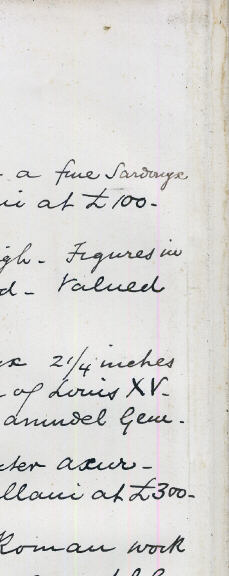 - a fine Sardonyx
ni at £100-
igh - Figures in
d - Valued
x 2 1/4 inches
- of Louis XV-
arundel Gem.
cter
llani at £300-
Roman work